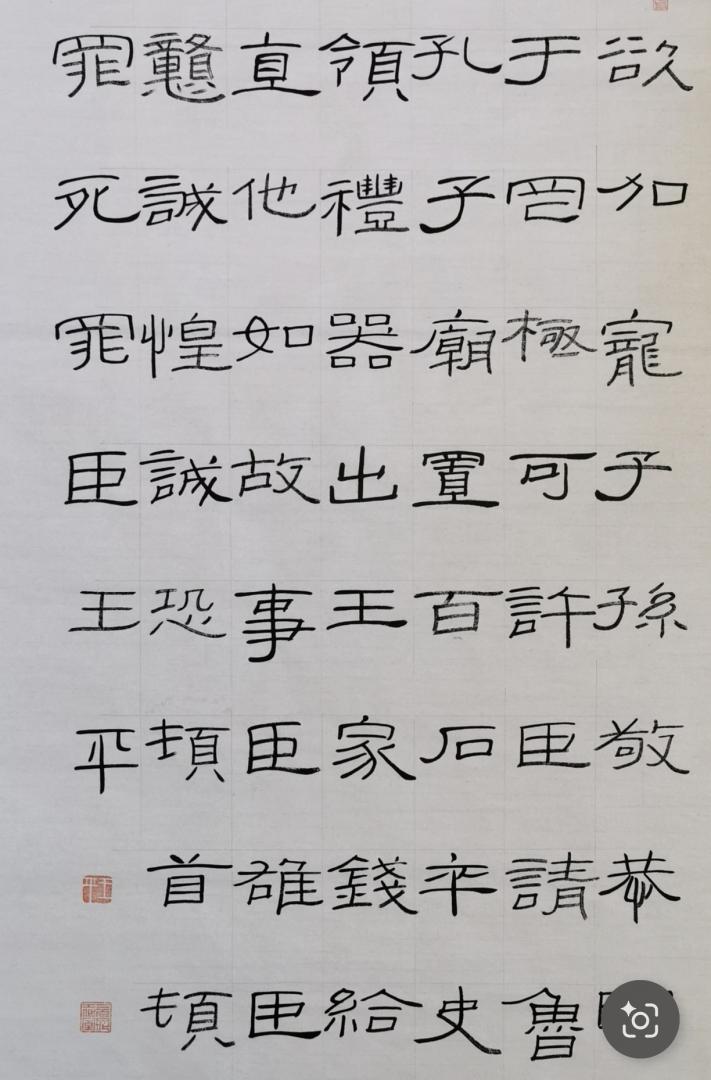 欲加寵子孫敬恭
于罔極可許臣請魯
孔子廟置百石卒史
領禮器出王家錢給
直他如故事臣雄臣
戇誠惶誠恐頓首頓
罪死罪臣王平